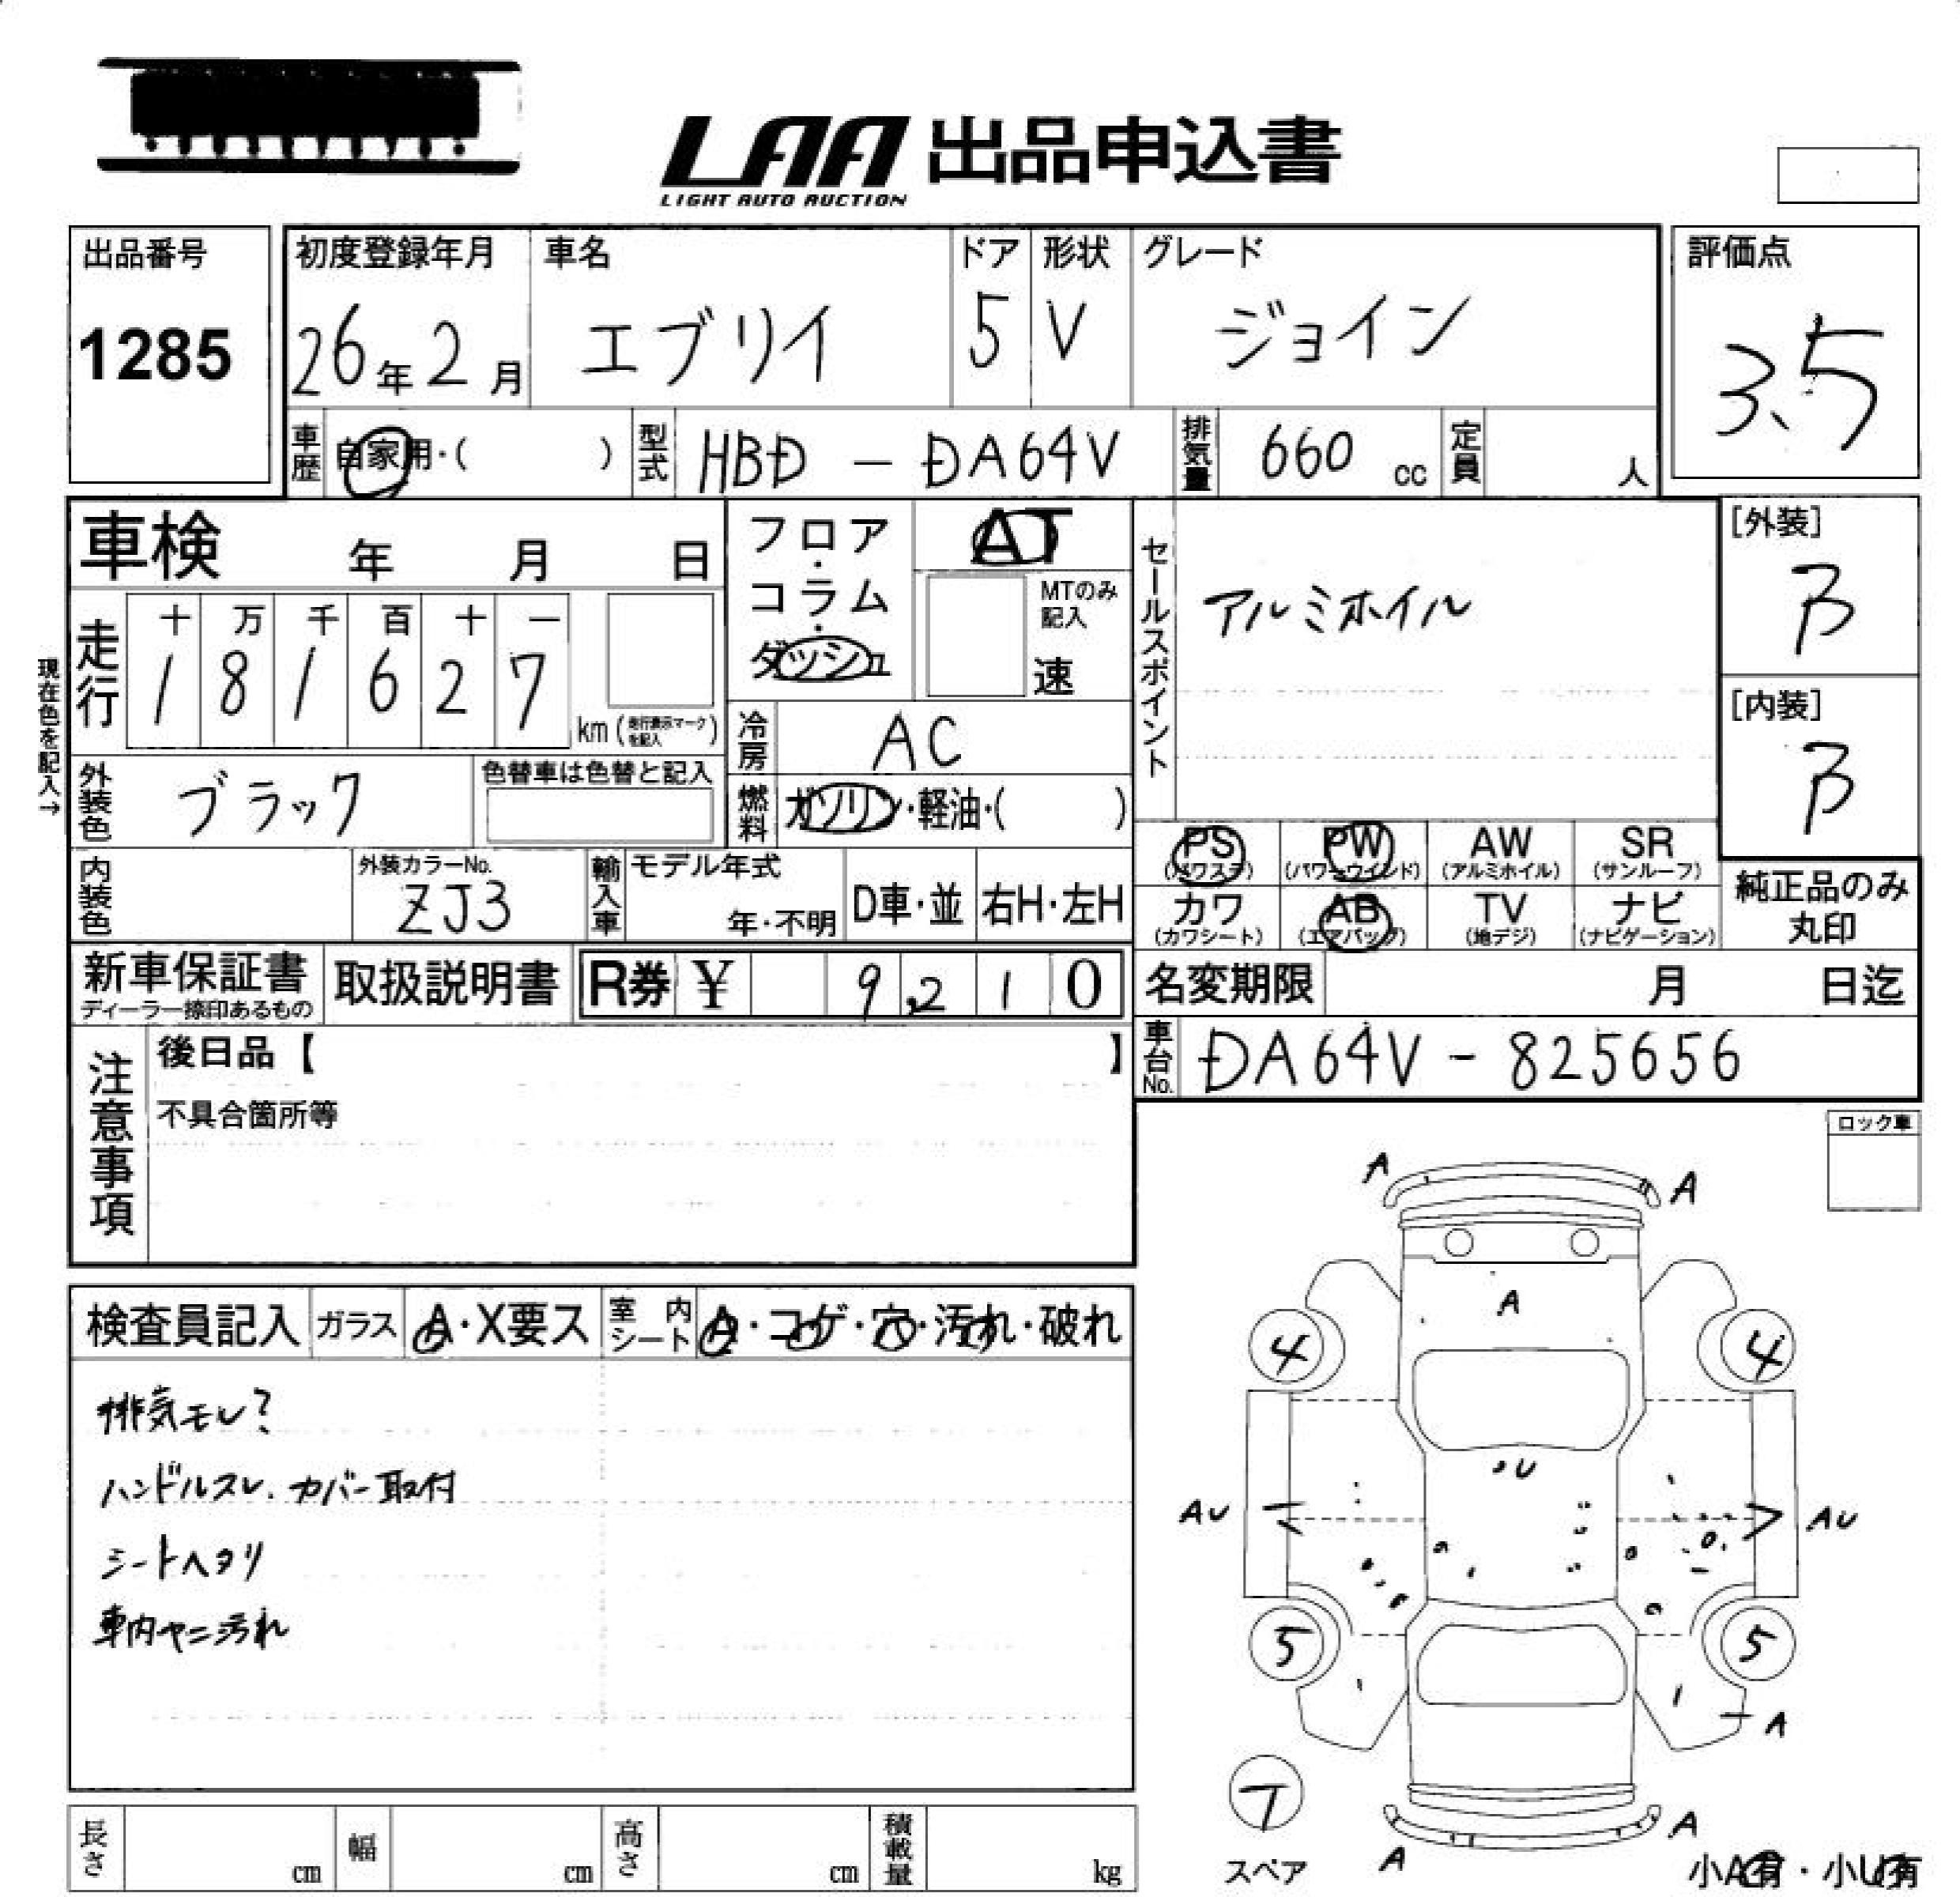 LAA 出品申込書
LIGHT AUTO AUCTION
出品番号
1285
初度登録年月
26年2月
車名
エブリイ
ドア
5
形状
V
グレード
ジョイン
評価点
3.5
車歴
自家用・( )
型式
HBD - DA64V
排気量
660 cc
定員
人
車検 年 月 日
フロア・コラム・ダッシュ
AT
MTのみ記入
速
セールスポイント
アルミホイル
[外装]
B
[内装]
B
現在色を記入→
走行
十 万 千 百 十 一
1 8 1 6 2 7
km (走行表示マークを記入)
冷房
AC
燃料
ガソリン・軽油・( )
外装色
ブラック
色替車は色替と記入
内装色
外装カラーNo.
ZJ3
輸入車
モデル年式
年・不明
D車・並
右H・左H
PS
(パワステ)
PW
(パワーウインド)
AW
(アルミホイル)
SR
(サンルーフ)
カワ
(カワシート)
AB
(エアバッグ)
TV
(地デジ)
ナビ
(ナビゲーション)
純正品のみ
丸印
新車保証書
ディーラー捺印あるもの
取扱説明書
R券 ¥ 9,210
名変期限 月 日迄
車台No.
DA64V - 825656
注意事項
後日品【 】
不具合箇所等
ロック車
検査員記入
ガラス
A・X要ス
室内シート
A・コゲ・穴・汚れ・破れ
排気モレ?
ハンドルスレ、カバー取付
シートヘタリ
車内ヤニ汚れ
A A
A
4 4
U
AU AU
5 5
A
T
スペア
A A
小A有・小U有
長さ cm
幅 cm
高さ cm
積載量 kg